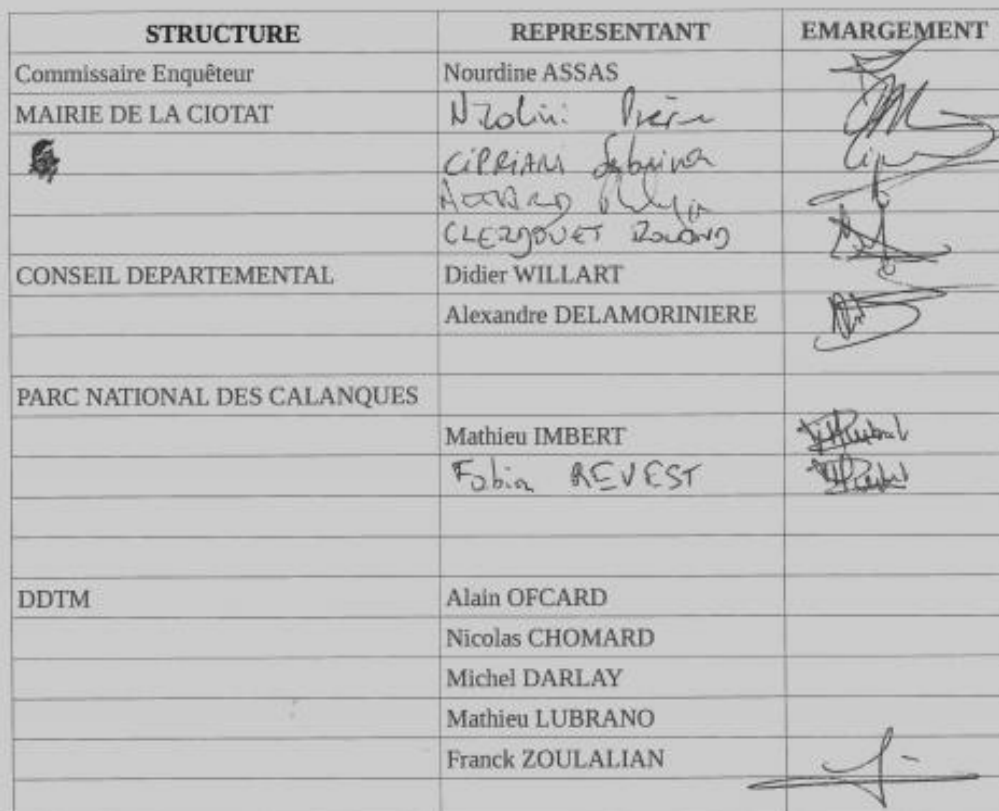 STRUCTURE REPRESENTANT EMARGEMENT
Commissaire Enquêteur Nourdine ASSAS
MAIRIE DE LA CIOTAT
CIPRIANI Sabrina
CLERJOUET ROLAND
CONSEIL DEPARTEMENTAL Didier WILLART
Alexandre DELAMORINIERE
PARC NATIONAL DES CALANQUES
Mathieu IMBERT
Fabien REVEST
DDTM Alain OFCARD
Nicolas CHOMARD
Michel DARLAY
Mathieu LUBRANO
Franck ZOULALIAN